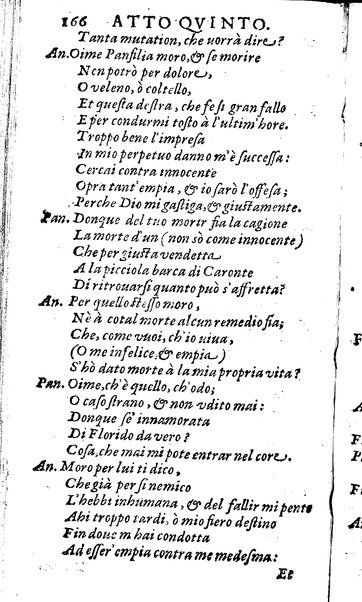 166 ATTO QVINTO.
Tanta mutation, che uorrà dire?
An. Oime Panfilia moro, & se morire
Nen potrò per dolore,
O veleno, ò coltello,
Et questa destra, che fe sì gran fallo
E per condurmi tosto à l'ultim'hore.
Troppo bene l'impresa
In mio perpetuo danno m'è successa:
Cercai contra innocente
Opra tant'empia, & io sarò l'offesa;
Perche Dio mi gastiga, & giustamente.
Pan. Donque del tuo morir fia la cagione
La morte d'un (non sò come innocente)
Che per giusta vendetta
A la picciola barca di Caronte
Di ritrouarsi quanto può s'affretta?
An. Per quello stesso moro,
Nè à cotal morte alcun remedio fia;
Che, come vuoi, ch'io uiua,
(O me infelice, & empia)
S'hò dato morte à la mia propria vita?
Pan. Oime, ch'è quello, ch'odo;
O caso strano, & non vdito mai:
Donque se' innamorata
Di Florido da vero?
Cosa, che mai mi pote entrar nel core.
An. Moro per lui ti dico,
Che già per sì nemico
L'hebbi inhumana, & del fallir mi pento
Ahi troppo tardi, ò mio fiero destino
Fin doue m hai condotta
Ad esser'empia contra me medesma:
Et